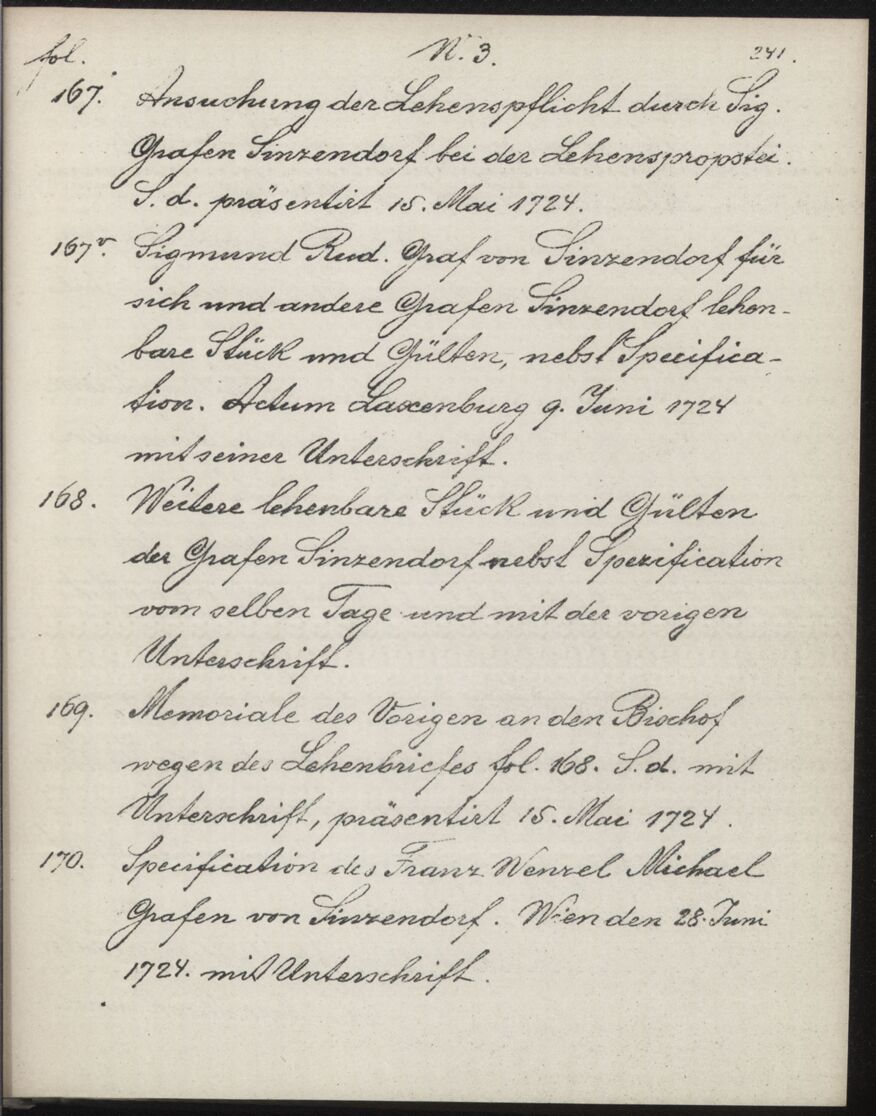 fol. N. 3. 241.
167. Ansuchung der Lehenspflicht durch Sig.
Grafen Sinzendorf bei der Lehenspropstei.
S. d. präsentirt 15. Mai 1724.
167v. Sigmund Rud. Graf von Sinzendorf für
sich und andere Grafen Sinzendorf lehen-
bare Stück und Gülten, nebst Specifica-
tion. Actum Laxenburg 9. Juni 1724
mit seiner Unterschrift.
168. Weitere lehenbare Stück und Gülten
der Grafen Sinzendorf nebst Spezification
vom selben Tage und mit der vorigen
Unterschrift.
169. Memoriale des Vorigen an den Bischof
wegen des Lehenbriefes fol. 168. S. d. mit
Unterschrift, präsentirt 15. Mai 1724.
170. Specification des Franz Wenzel Michael
Grafen von Sinzendorf. Wien den 28. Juni
1724. mit Unterschrift.